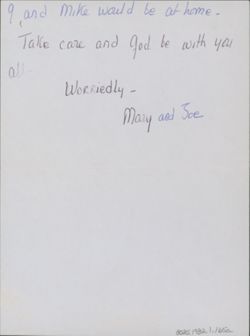 9, and Mike would be at home.
Take care and God be with you
all.
Worriedly -
Mary and Joe